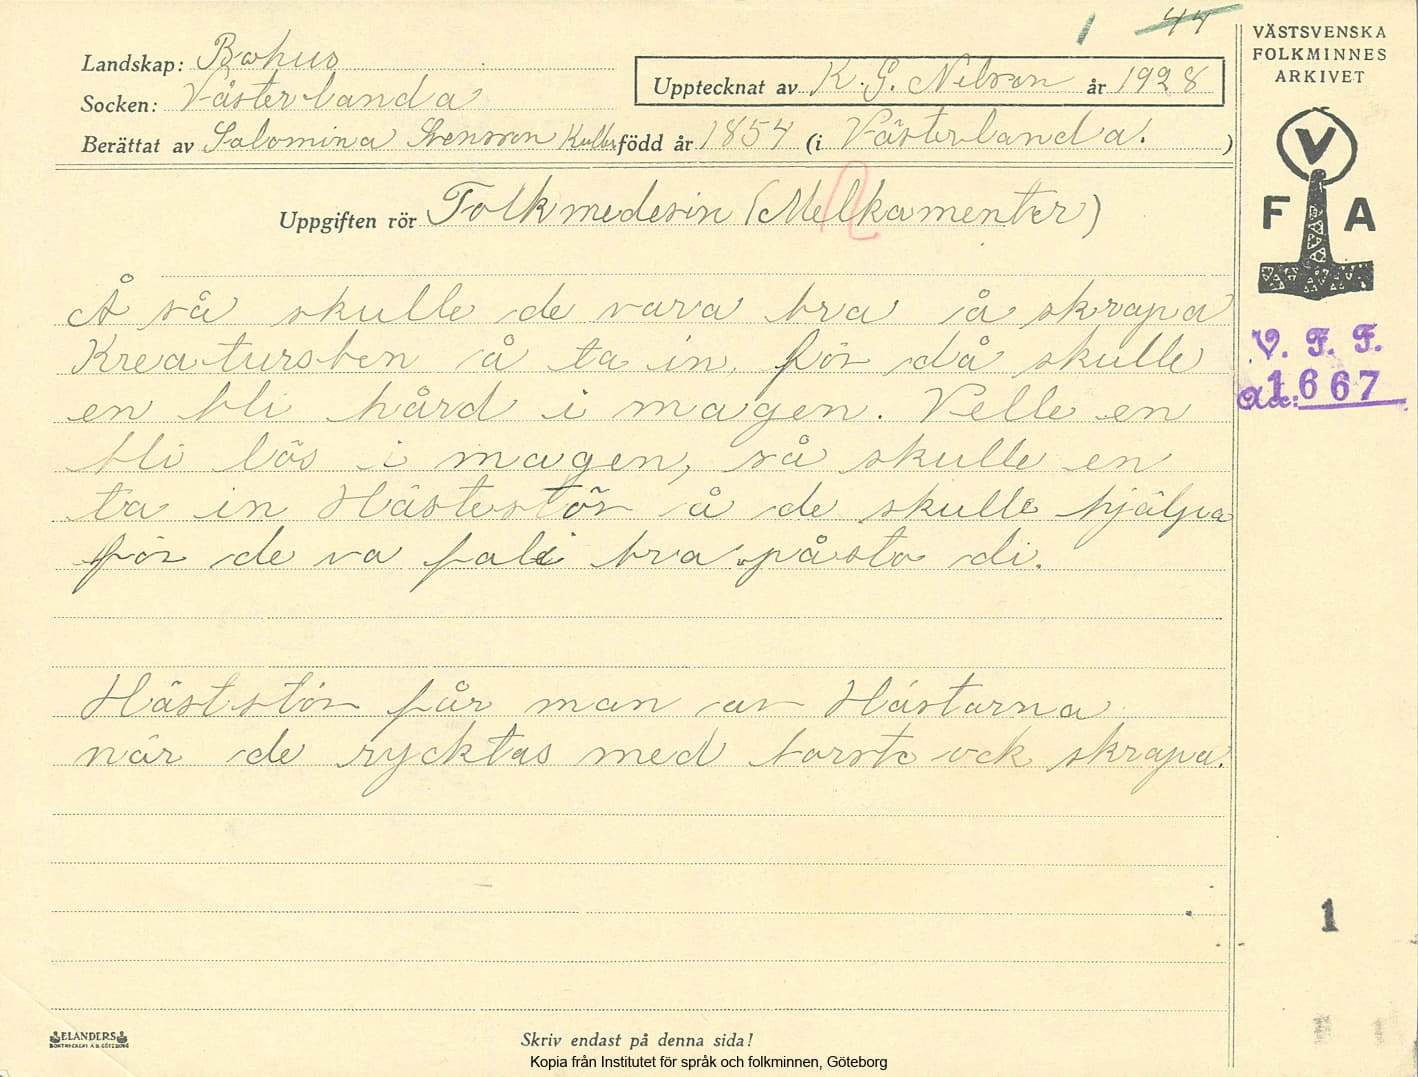 1 44
VÄSTSVENSKA
FOLKMINNES
ARKIVET
Landskap: Bohus
Upptecknat av K. G. Nelson år 1928
Socken: Västerlanda
Berättat av Salomina Svensson född år 1854 (i Västerlanda. )
V
F A
Uppgiften rör Folkmedesin (Melkamenter)
Å så skulle de vara bra å skrapa
Kreatursben å ta in, för då skulle
en bli hård i magen. Velle en
bli lös i magen, så skulle en
ta in Hästestör å de skulle hjälpa
för de va fali bra påsto di.
V. F. F.
Acc: 1667
Häststör får man av Hästarna
när de rycktas med borste ock skrapa.
1
ELANDERS
BOKTRYCKERI A.B. GÖTEBORG
Skriv endast på denna sida!
Kopia från Institutet för språk och folkminnen, Göteborg